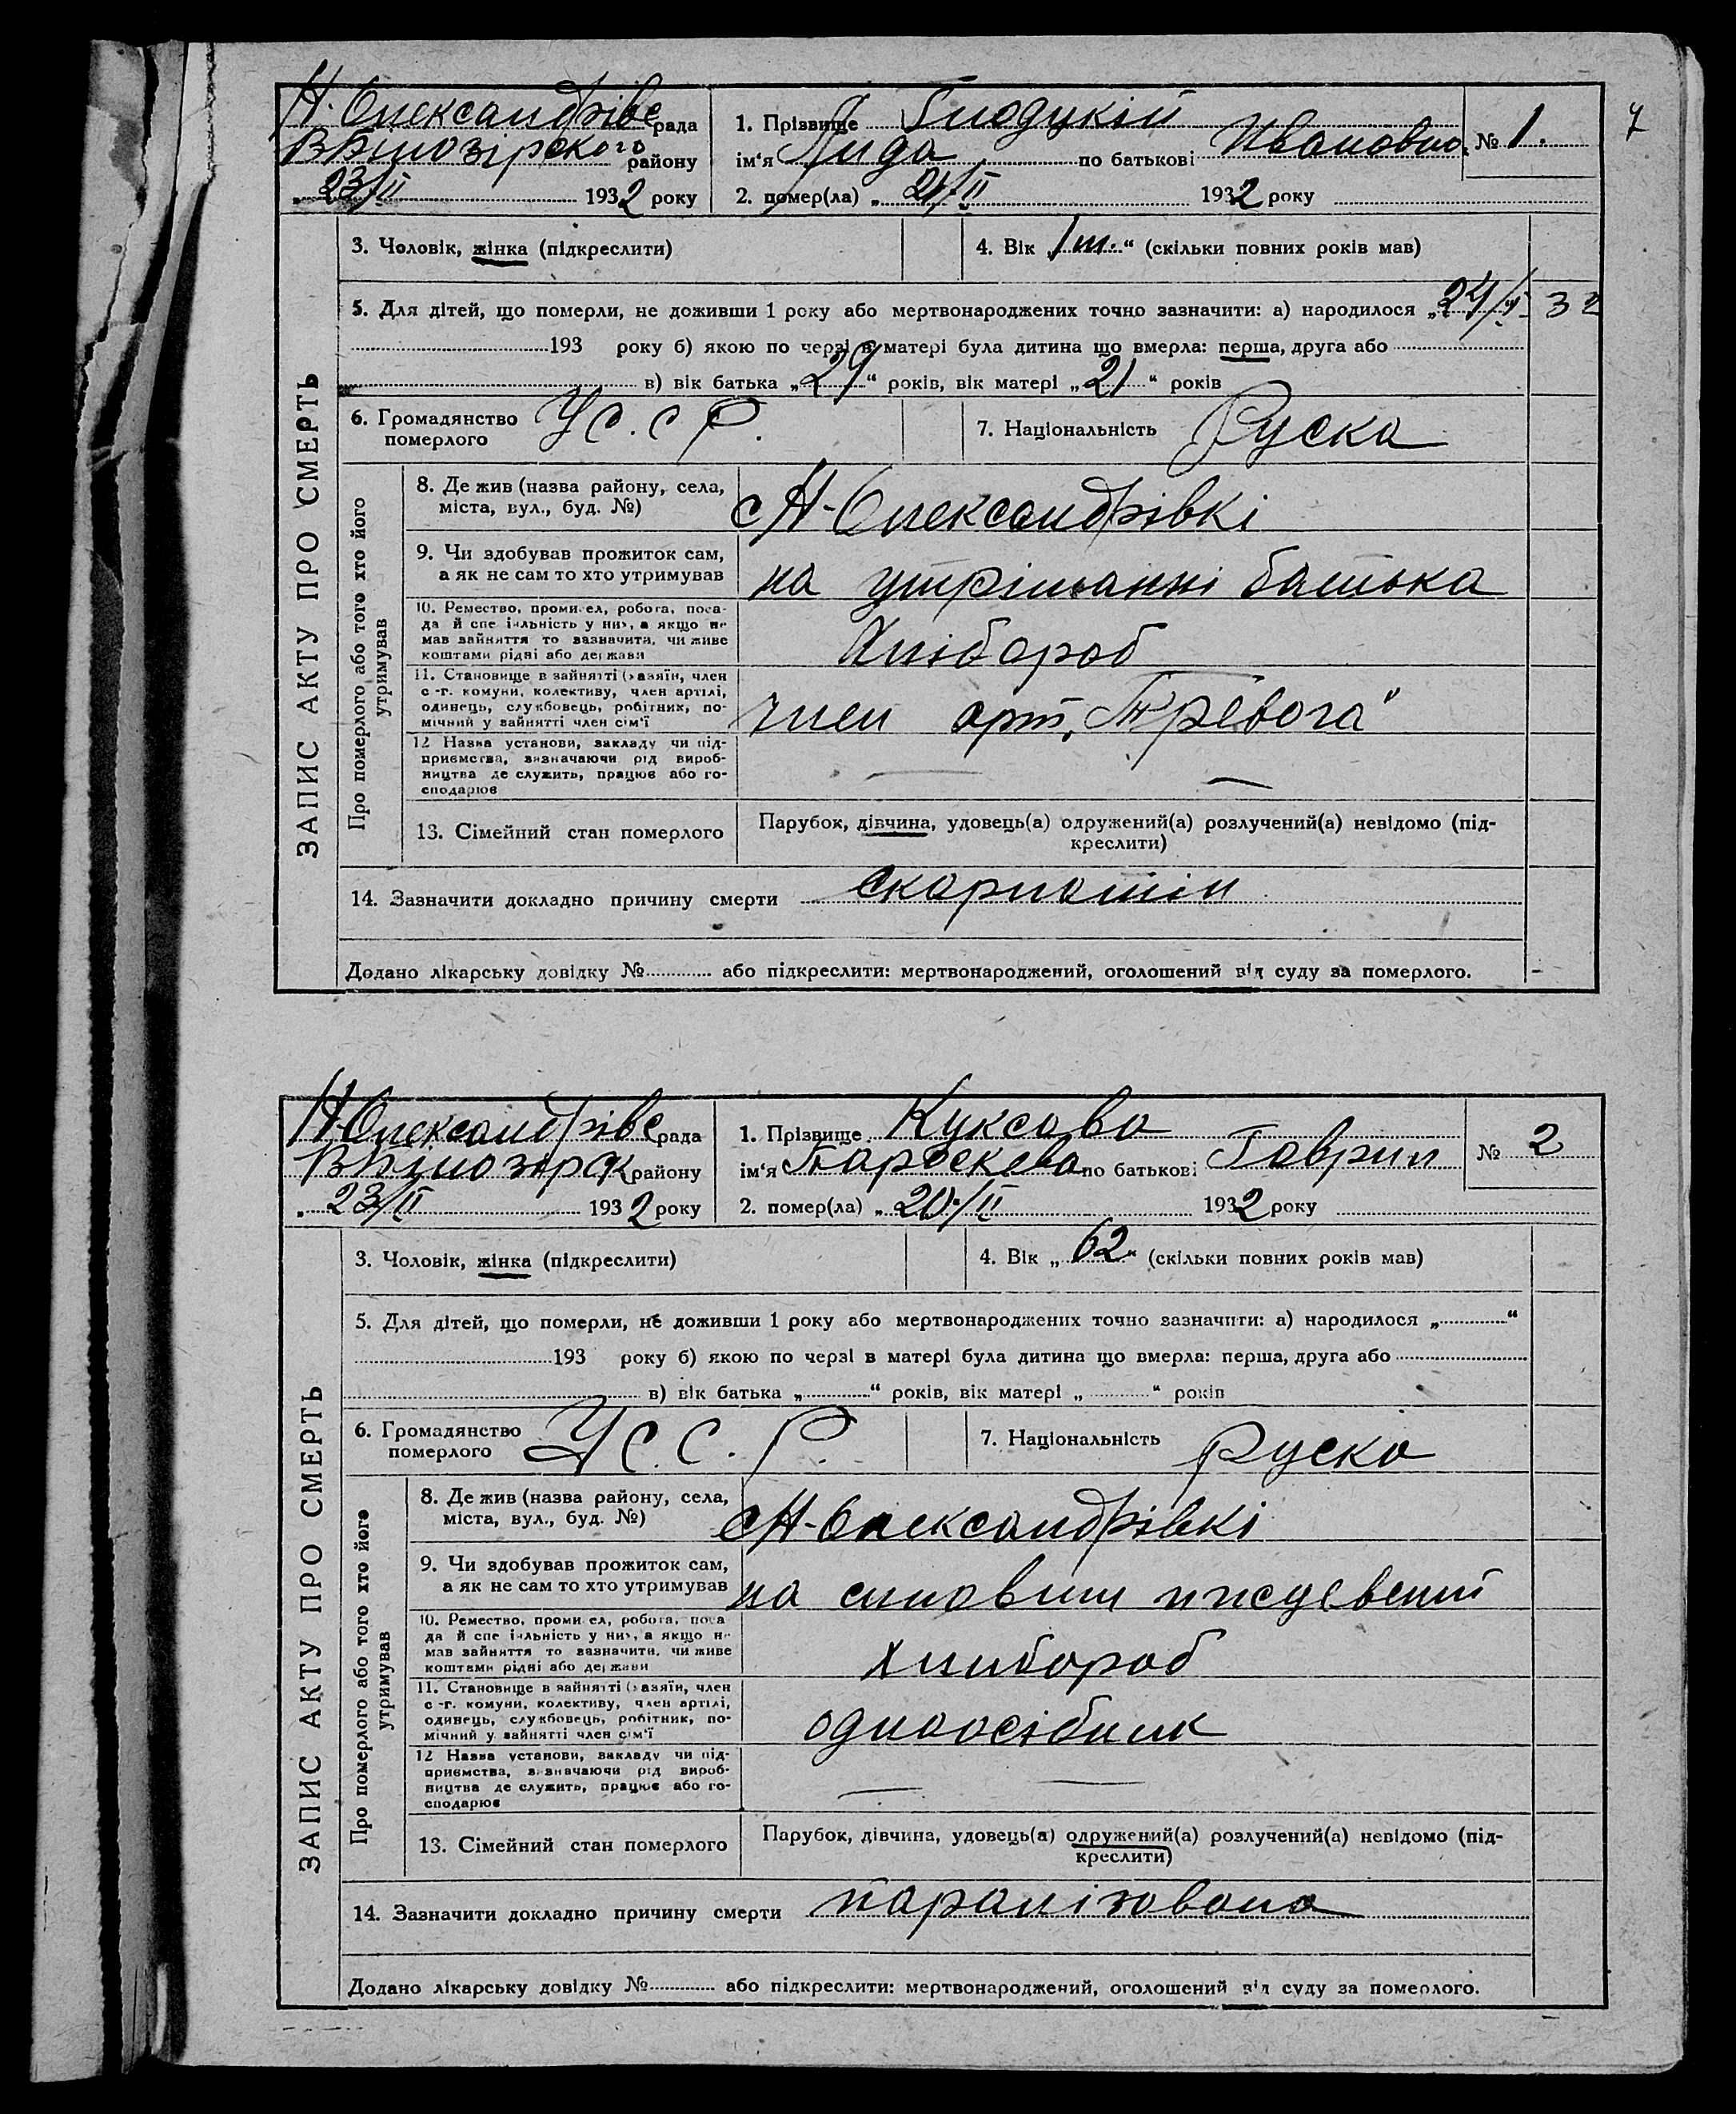 7
Н. Олександрівс рада
В Білозірского району
„ 23/II 1932 року
1. Прізвище
ім'я Лида по батькові Ивановна
№ 1.
2. помер(ла) „ 21/II 1932 року
ЗАПИС АКТУ ПРО СМЕРТЬ
3. Чоловік, жінка (підкреслити)
4. Вік „1 m.“ (скільки повних років мав)
5. Для дітей, що померли, не доживши 1 року або мертвонароджених точно зазначити: а) народилося „24/I 32
193 року б) якою по черзі в матері була дитина що вмерла: перша, друга або
в) вік батька „29“ років, вік матері „21“ років
6. Громадянство
померлого
У С. С Р.
7. Національність Руска
Про померлого або того хто його
утримував
8. Де жив (назва району, села,
міста, вул., буд. №)
с Н-Олександрівкі
9. Чи здобував прожиток сам,
а як не сам то хто утримував
на утріманні батька
10. Ремество, промисел, робота, поса-
да й спеціяльність у них, а якщо не
мав зайняття то зазначити, чи живе
коштами рідні або держави
Хлібороб
11. Становище в зайнятті (хазяїн, член
с.-г. комуни, колективу, член артілі,
одинець, службовець, робітник, по-
мічний у зайнятті член сім'ї
член арт. „Тревога“
12 Назва установи, закладу чи під-
приємства, визначаючи рід вироб-
ництва де служить, працює або го-
сподарює
13. Сімейний стан померлого
Парубок, дівчина, удовець(а) одружений(а) розлучений(а) невідомо (під-
креслити)
14. Зазначити докладно причину смерти скорлатін
Додано лікарську довідку № або підкреслити: мертвонароджений, оголошений від суду за померлого.
Н Олександрівс рада
В Білозірск району
„ 23/II 1932 року
1. Прізвище Куксова
ім'я Параскева по батькові Гаврил
№ 2
2. помер(ла) „ 20/II 1932 року
ЗАПИС АКТУ ПРО СМЕРТЬ
3. Чоловік, жінка (підкреслити)
4. Вік „62“ (скільки повних років мав)
5. Для дітей, що померли, не доживши 1 року або мертвонароджених точно зазначити: а) народилося „ “
193 року б) якою по черзі в матері була дитина що вмерла: перша, друга або
в) вік батька „ “ років, вік матері „ “ років
6. Громадянство
померлого
У С. С. Р.
7. Національність Руска
Про померлого або того хто його
утримував
8. Де жив (назва району, села,
міста, вул., буд. №)
с Н-Олександрівкі
9. Чи здобував прожиток сам,
а як не сам то хто утримував
на
10. Ремество, промисел, робота, поса-
да й спеціяльність у них, а якщо не
мав зайняття то зазначити, чи живе
коштами рідні або держави
хлибороб
11. Становище в зайнятті (хазяїн, член
с.-г. комуни, колективу, член артілі,
одинець, службовець, робітник, по-
мічний у зайнятті член сім'ї
одноосібник
12 Назва установи, закладу чи під-
приємства, визначаючи рід вироб-
ництва де служить, працює або го-
сподарює
13. Сімейний стан померлого
Парубок, дівчина, удовець(а) одружений(а) розлучений(а) невідомо (під-
креслити)
14. Зазначити докладно причину смерти паралізована
Додано лікарську довідку № або підкреслити: мертвонароджений, оголошений від суду за померлого.